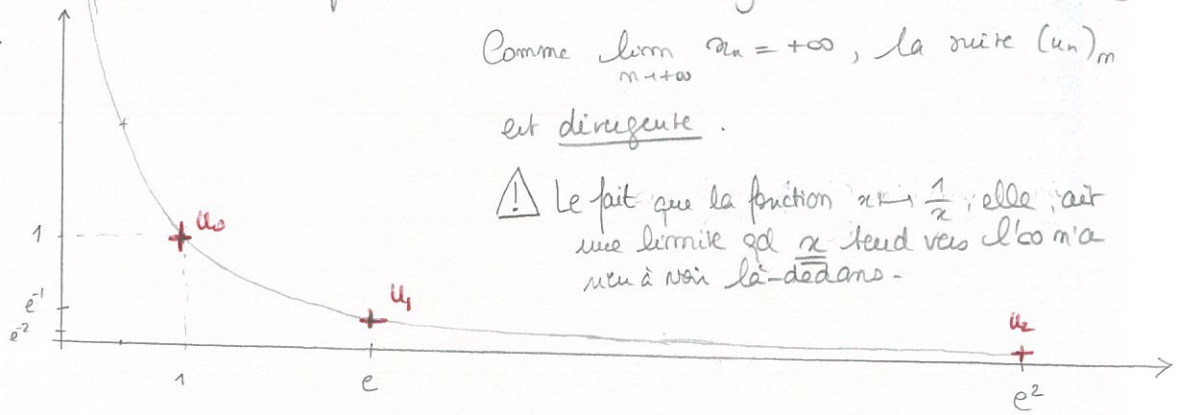 Comme lim xₙ = +∞, la suite (uₙ)ₙ
n→+∞
est divergente.
⚠ Le fait que la fonction x ↦ 1/x, elle, ait
une limite qd x tend vers l'∞ n'a
rien à voir là-dedans.
u₀
1
u₁
e⁻¹
u₂
e⁻²
1
e
e²